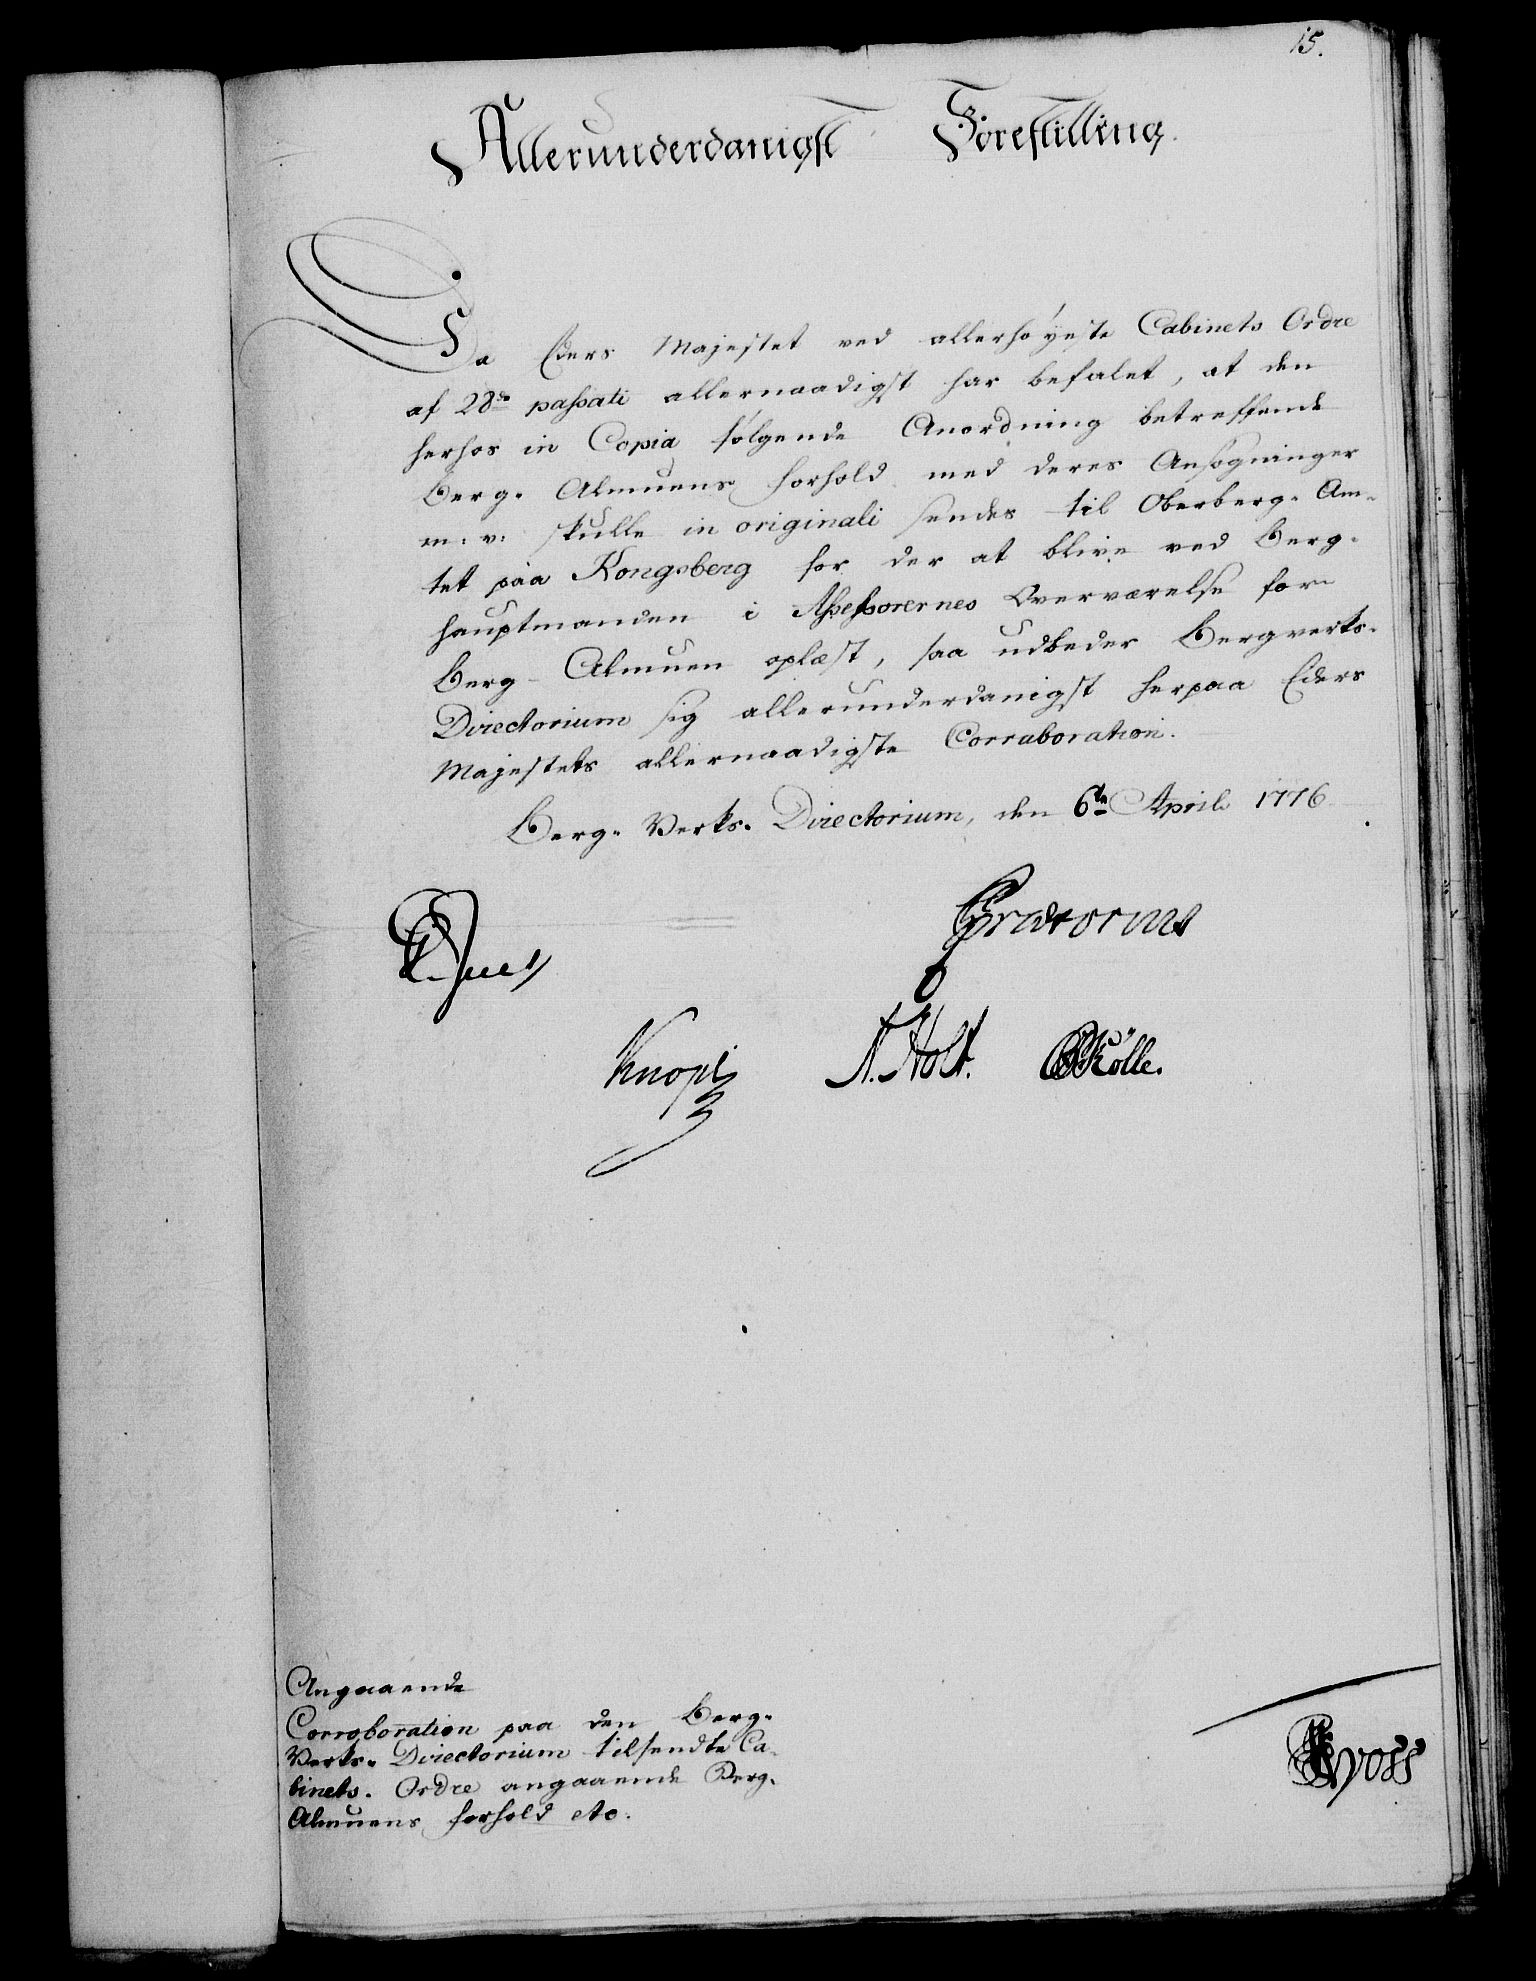 15.
Allerunderdanigst Forestilling.
Da Eders Majestet ved allerhøyeste Cabinets Ordre
af 28de passati allernaadigst har befalet, at den
herhos in Copia følgende Anordning betreffende
Berg- Almuens forhold med deres Ansøgninger
m: v: skulle in originali sendes til Oberberg- Am-
tet paa Kongsberg for der at blive ved Berg-
hauptmanden i Assessorernes Overværelse for
Berg- Almuen oplæst, saa udbeder Bergverks-
Directorium sig allerunderdanigst herpaa Eders
Majestets allernaadigste Corraboration.
Berg- Verks- Directorium, den 6te April 1776.
Knopf
N. Holt. Kölle.
Angaaende
Corroboration paa den Berg-
Verks- Directorium tilsendte Ca-
binets- Ordre angaaende Berg-
Almuens forhold etc.